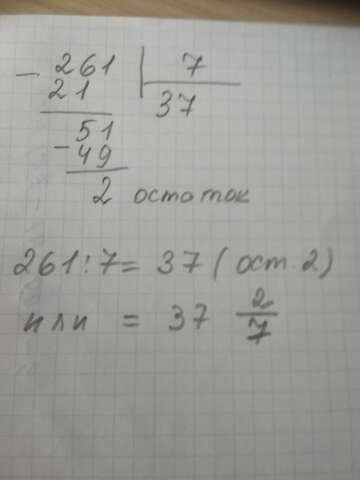 - 261 | 7
21 37
51
- 49
2 остаток
261:7 = 37 (ост. 2)
или = 37 2/7